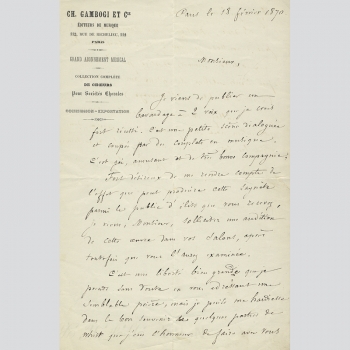 CH. GAMBOGI ET Cie
ÉDITEURS DE MUSIQUE
112, RUE DE RICHELIEU, 112
PARIS
GRAND ABONNEMENT MUSICAL
COLLECTION COMPLÈTE
DE CHŒURS
Pour Sociétés Chorales
COMMISSION - EXPORTATION
Paris le 18 février 1870
Monsieur,
Je viens de publier un
bavardage à 2 voix que je crois
fort réussi. C'est une petite scène dialoguée
et coupée par des couplets en musique.
C'est gai, amusant et de très bonne compagnie.
Fort désireux de me rendre compte de
l'effet que peut produire cette
parmi le public d'élite que vous recevez,
je viens, Monsieur, solliciter une audition
de cette œuvre dans vos salons, après
toutefois que vous l'aurez examinée.
C'est une liberté bien grande que je
prends sans doute en vous adressant une
semblable prière, mais je puise ma hardiesse
dans le bon souvenir des quelques parties de
whist que j'eus l'honneur de faire avec vous